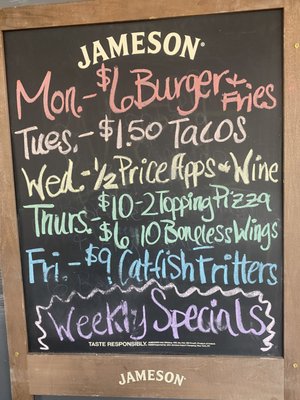 JAMESON®
Mon.-$6 Burger + Fries
Tues.-$1.50 Tacos
Wed.-1/2 Price Apps & Wine
Thurs.-$10-2 Topping Pizza
$6 10 Boneless Wings
Fri.-$9 Catfish Fritters
Weekly Specials
TASTE RESPONSIBLY.
JAMESON®